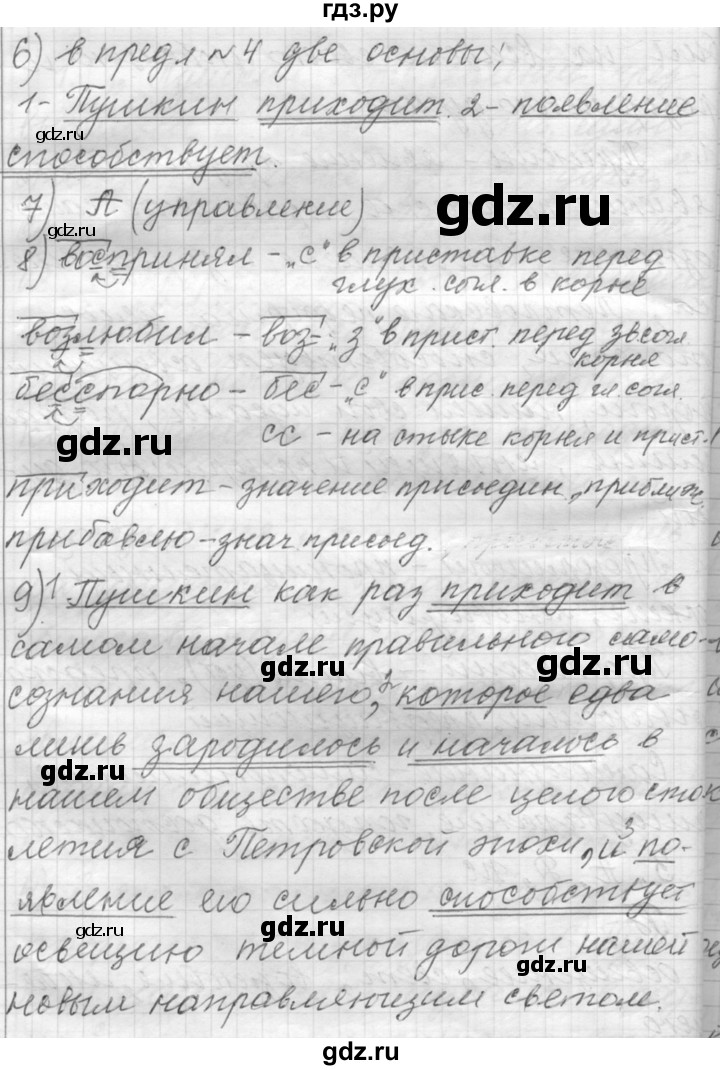 гдз.ру
6) в предл №4 две основы;
1- Пушкин приходит. 2- появление
gdz.ru
способствует.
7) А (управление)
gdz.ru
gdz.ru
8) воспринял - „с“ в приставке перед
глух. согл. в корне
возлюбил - воз- : „з“ в прист. перед зв. согл
корня
бесспорно - бес - „с“ в прис. перед гл. согл.
gdz.ru
gdz.ru
сс - на стыке корня и прист.
приходит - значение присоедин., приближ.
прибавлю - знач присоед.
gdz.ru
9) 1 Пушкин как раз приходит в
самом начале правильного само-
gdz.ru
gdz.ru
сознания нашего, 2 которое едва
лишь зародилось и началось в
gdz.ru
нашем обществе после целого сто
летия с Петровской эпохи, и 3 по-
gdz.ru
явление его сильно способствует
gdz.ru
освещию темной дороги нашей
gdz.ru
новым направляющим светом.
gdz.ru